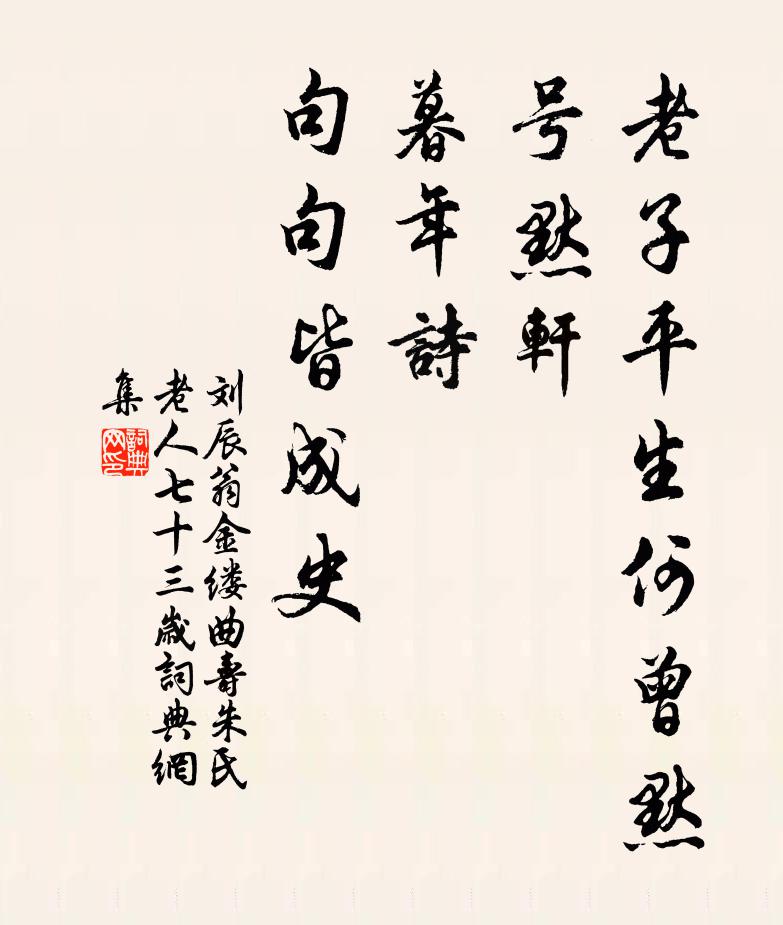 老子平生何曾默
号默軒
暮年詩
句句皆成史
刘辰翁金缕曲壽朱氏
老人七十三歲詞典網
集
詞典
网印